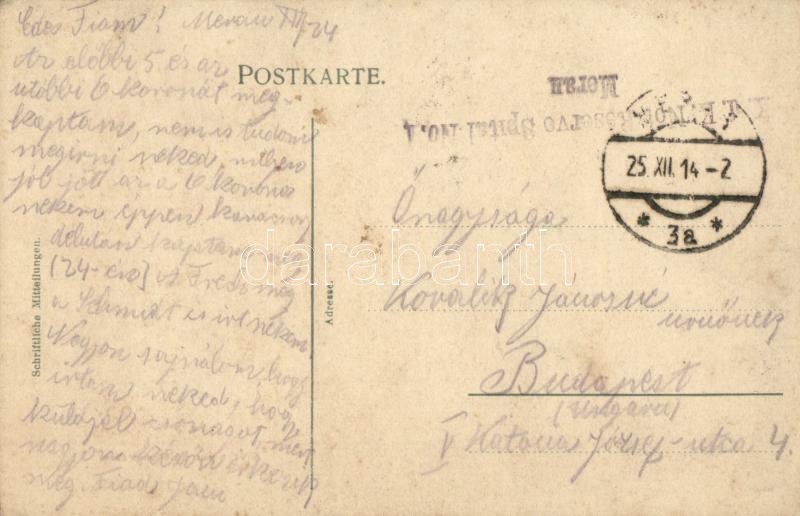 Édes Fiam! Meran XII/24
Az előbbi 5 és az
utóbbi 6 koronát meg-
kaptam, nem is tudom
megirni neked, milyen
jól jött az a 6 korona
nekem éppen karácsony
délután kaptam meg
(24-én) A Fredi meg
a Schmidt is irt nekem
Nagyon sajnálom, hogy
irtam neked, hogy
küldjél csomagot, mert
nagyon későn érkezik
meg. Fiad Jani
POSTKARTE.
K. u. K. Reserve Spital No. 1
Meran
25.XII.14-2
* 3a *
Schriftliche Mitteilungen.
Adresse.
Őnagysága
Kovalik Jánosné
urnőnek
Budapest
(Ungarn)
V Katona József-utca 4.
darabanth